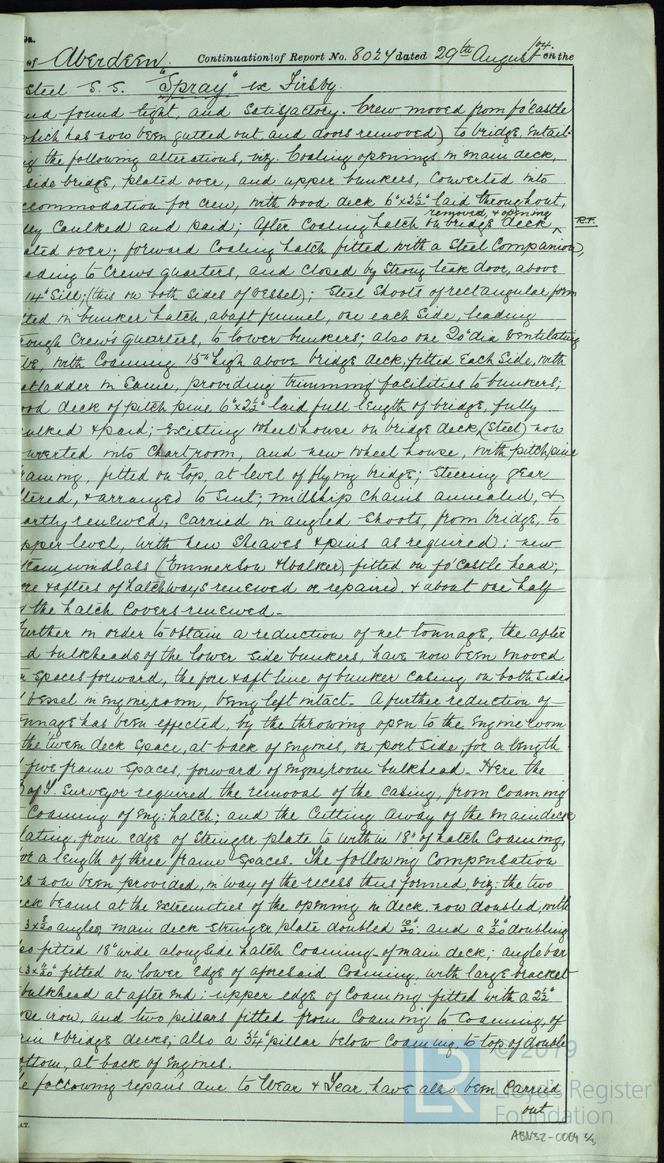 of Aberdeen. Continuation of Report No. 8024 dated 29th August 04. on the
Steel S.S. "Spray" ex Firsby.
nd found tight, and satisfactory. Crew moved from fo'castle
which has now been gutted out and doors removed) to bridge, entail-
ng the following alterations, viz. Coaling openings in main deck,
side bridge, plated over, and upper bunkers, converted into
ccommodation for crew, with wood deck 6"x2½" laid throughout,
removed, & opening
lly caulked and paid; after coaling hatch on bridge deck ^ R.F.
ated over; forward coaling hatch fitted with a steel companion,
ading to crews quarters, and closed by strong teak door, above
14" sill; (this on both sides of vessel); steel shoots of rectangular form
tted in bunker hatch, abaft funnel, one each side, leading
rough crew's quarters, to lower bunkers; also one 20" dia ventilating
be, with coaming 15" high above bridge deck, fitted each side, with
at ladder in same, providing trimming facilities to bunkers;
ood deck of pitch pine 6"x2½" laid full length of bridge, fully
aulked & paid; existing wheel house on bridge deck (steel) now
nverted into chart room, and new wheel house, with pitch pine
raming, fitted on top, at level of flying bridge; steering gear
ltered, & arranged to suit; midship chains annealed, &
artly renewed, carried in angled shoots, from bridge, to
pper level, with new sheaves & pins as required; new
team windlass (Emmerson & Walker) fitted on fo'castle head;
ore & afters of hatchways renewed or repaired, & about one half
the hatch covers renewed.
Further in order to obtain a reduction of net tonnage, the after
d bulkheads of the lower side bunkers, have now been moved
spaces forward, the fore & aft line of bunker casing on both sides
vessel in engine room, being left intact. A further reduction of
nnage has been effected, by the throwing open to the engine room
the tween deck space, at back of engines, on port side, for a length
five frame spaces, forward of engine room bulkhead. Here the
of T. Surveyor required the removal of the casing, from coaming
coaming of eng: hatch; and the cutting away of the main deck
lating, from edge of stringer plate to within 18" of hatch coaming,
or a length of three frame spaces. The following compensation
as now been provided, in way of the recess thus formed, viz: the two
eck beams at the extremities of the opening in deck, now doubled, with
angles; main deck stringer plate doubled and a doubling
so fitted 18" wide alongside hatch coaming of main deck; angle bar
fitted on lower edge of aforesaid coaming, with large bracket
bulkhead at after end: upper edge of coaming fitted with a 2½"
iron, and two pillars fitted from coaming to coaming, of
ain & bridge decks; also a 3¼" pillar below coaming, to top of double
ottom, at back of engines.
e following repairs due to Wear & Tear, have also been carried
out
© 2019
LR
Lloyd's Register
Foundation
ABN32-0064 3/3